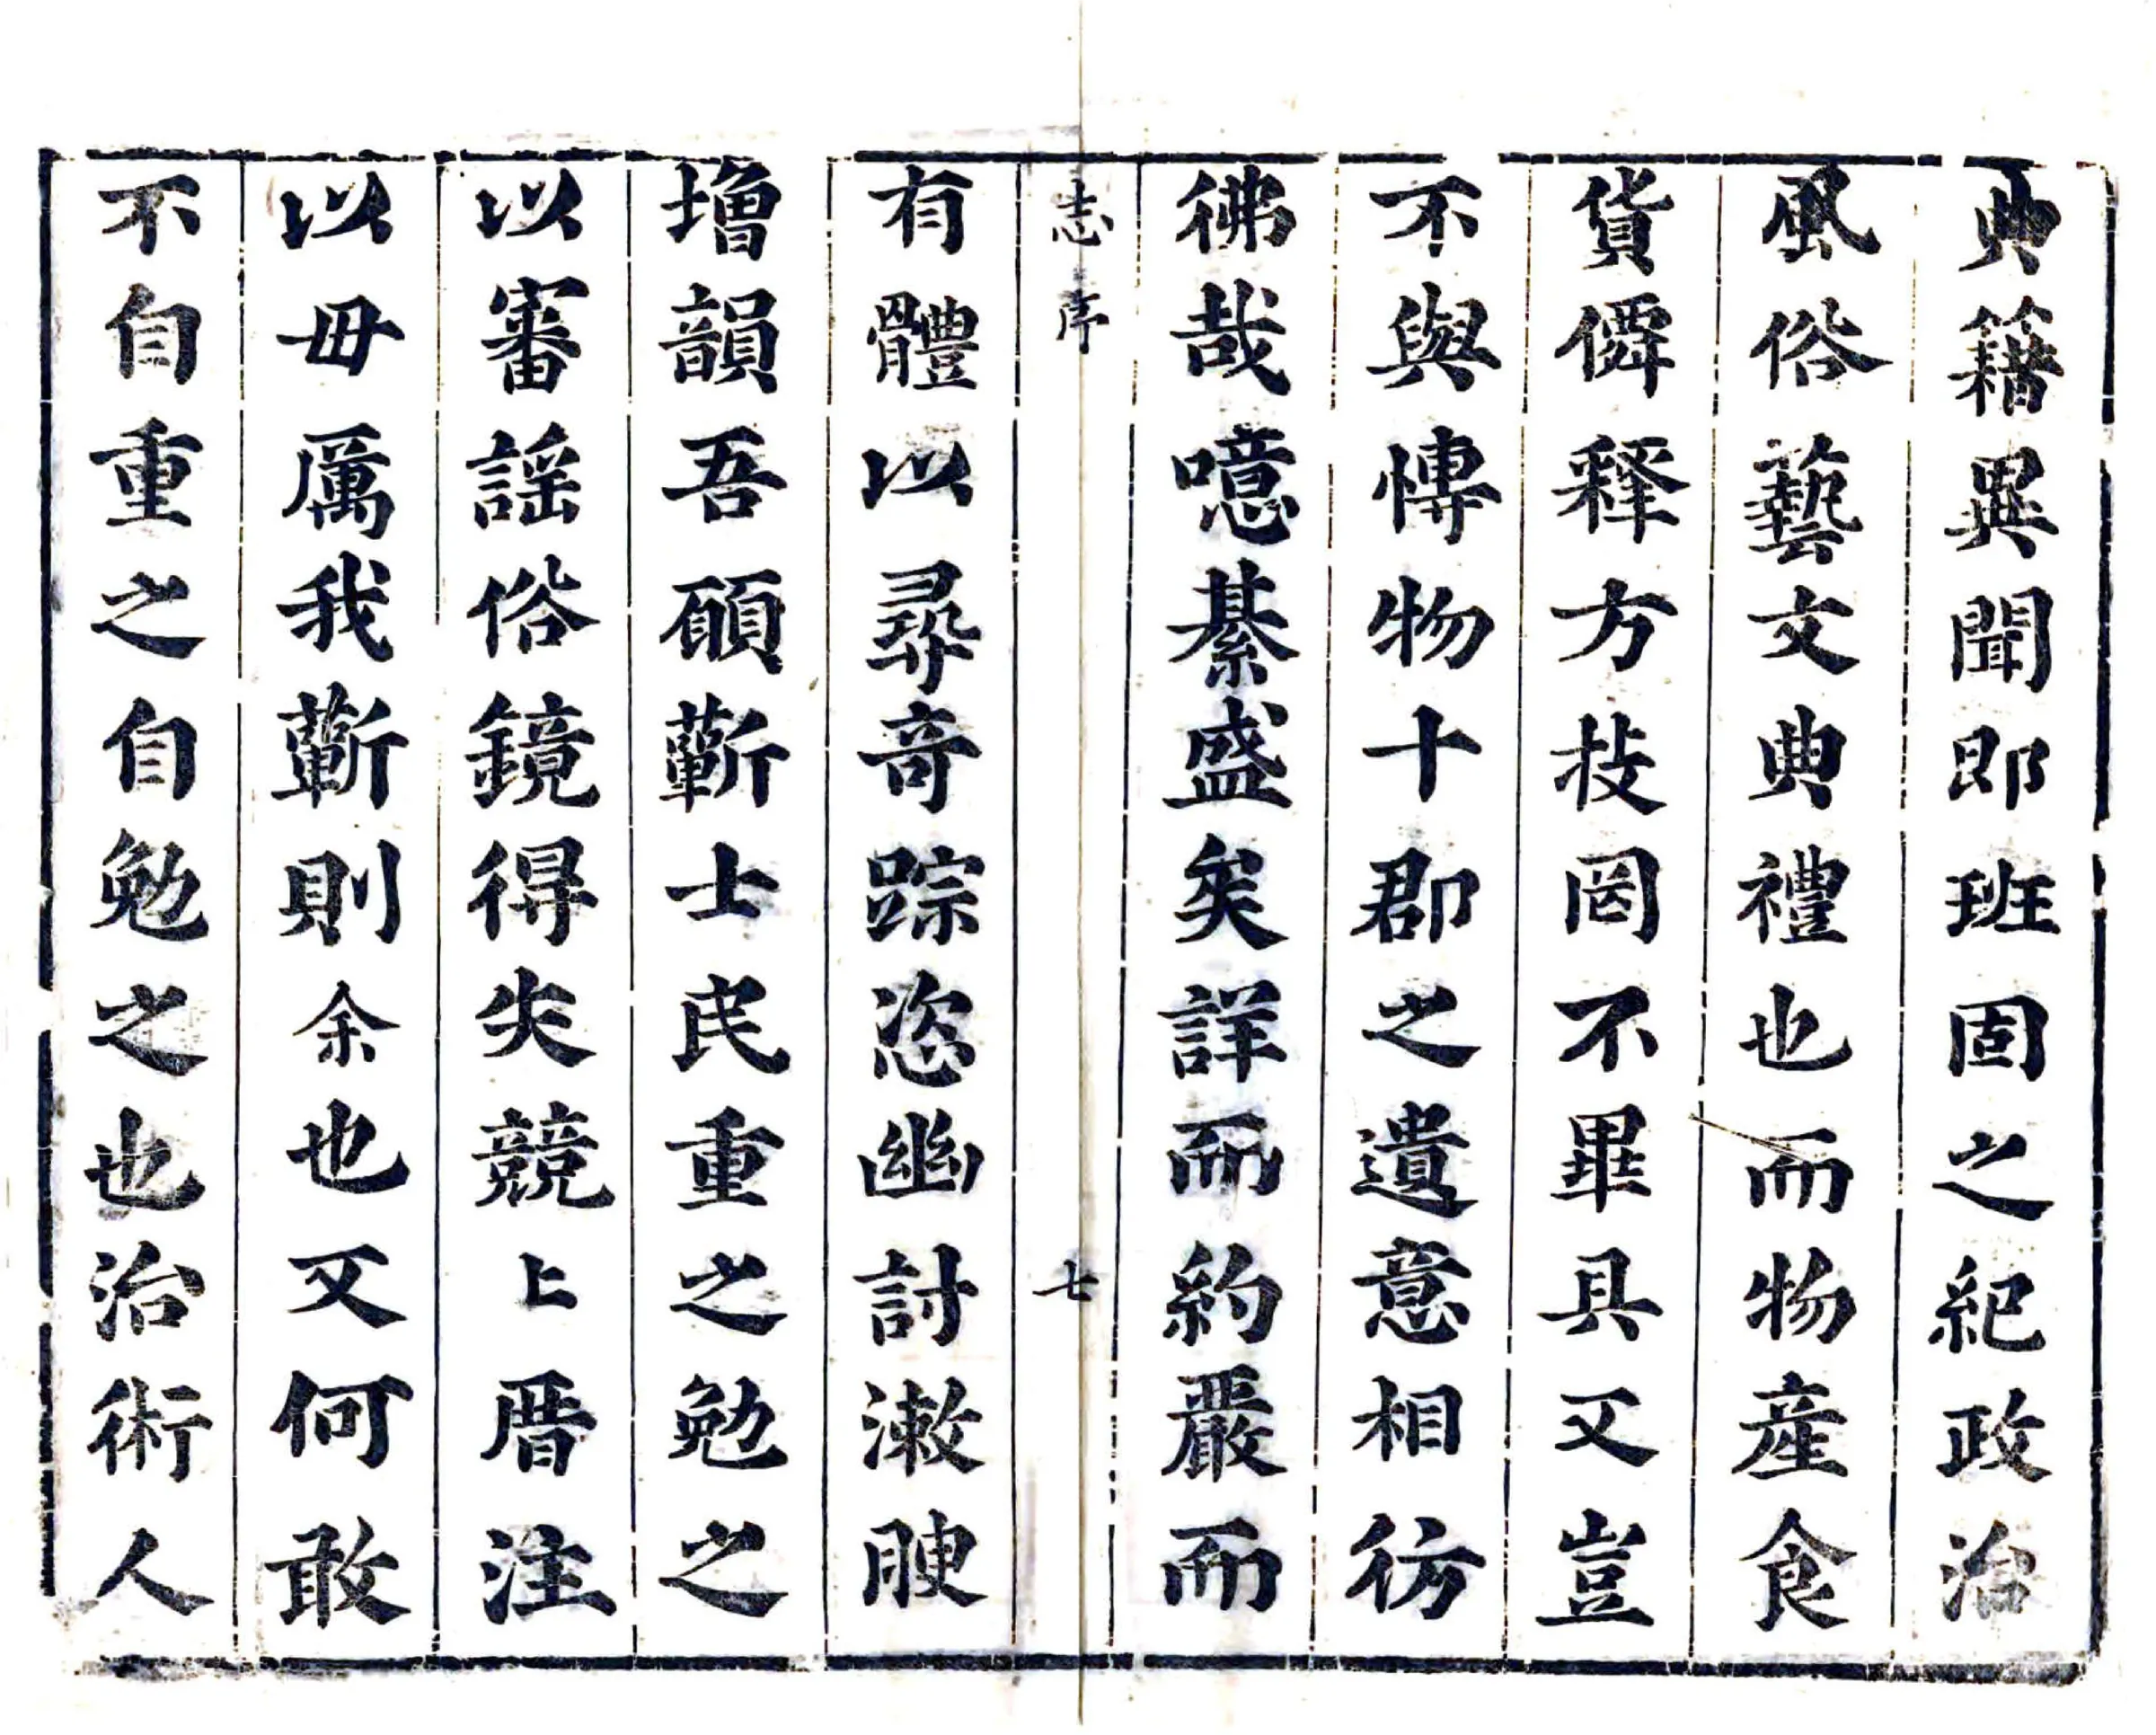 典籍異聞即班固之紀政治
風俗藝文典禮也而物産食
貨僊释方技罔不畢具又豈
不與愽物十郡之遺意相彷
彿哉噫綦盛矣詳而約嚴而
志序 七
有體以尋竒踪恣幽討漱腴
増韻吾願蘄士民重之勉之
以審謡俗鏡得失競上厝注
以毋厲我蘄則余也又何敢
不自重之自勉之也治術人